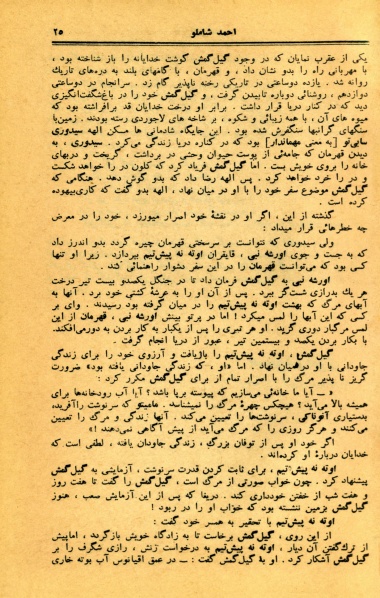 احمد شاملو ۲۵
یکی از عقرب نمایان که در وجود گیل‌گمش گوشت خدایانه را باز شناخته بود ،
با مهربانی راه را بدو نشان داد ، و قهرمان ، با گامهای بلند به دره‌های تاریک
روانه شد . یازده دوساعتی در تاریکی رخنه ناپذیر گام زد . سرانجام در دوساعتی
دوازدهم ، روشنائی دوباره تابیدن گرفت ، و گیل‌گمش خود را در باغ‌شگفت‌انگیزی
دید که در کنار دریا قرار داشت . برابر او درخت خدایان قد برافراشته بود که
میوه های آن ، با همه زیبائی و شکوه ، بر شاخه های لاجوردی رسته بودند . زمین‌با
سنگهای گرانبها سنگفرش شده بود . این جایگاه شادمانی ها مسکن الهه سیدوری
سابی‌تو [به معنی مهماندار] بود که در کناره دریا زندگی می‌کرد . سیدوری ، به
دیدن قهرمان که جامه‌ئی از پوست حیوان وحشی در برداشت ، گریخت و دربهای
خانه را بروی خویش بست . اما گیل‌گمش فریاد کرد که کلون در را خواهد شکست
و در را خرد خواهد کرد . پس الهه رضا داد که بدو گوش دهد . هنگامی که
گیل‌گمش موضوع سفر خود را با او در میان نهاد ، الهه بدو گفت که کاری‌بیهوده
کرده است .
گذشته از این ، اگر او در نقشهٔ خود اصرار میورزد ، خود را در معرض
چه خطرهائی قرار میداد :
ولی سیدوری که نتوانست بر سرسختی قهرمان چیره گردد بدو اندرز داد
که به جست و جوی اورشه نبی ، قایقران اوته نه پیش‌تیم بپردازد . زیرا او تنها
کسی بود که می‌توانست قهرمان را در این سفر دشوار راهنمائی کند .
اورشه نبی به گیل‌گمش فرمان داد تا در جنگل یکصدو بیست تیر درخت
هر یک بدرازی شصت‌گز ببرد . پس از آن او را به عرشهٔ کشتی خود برد . آنها به
آبهای مرگ که بهشت اوته نه پیش‌تیم را در میان گرفته بود رسیدند . وای بر
کسی که این آبها را لمس میکرد ! اما در پرتو بینش اورشه نبی ، قهرمان از این
لمس مرگبار دوری گزید . او هر تیری را پس از یکبار به کار بردن به دورمی‌افکند.
با بکار بردن یکصد و بیستمین تیر ، عبور از دریا انجام گرفت .
گیل‌گمش ، اوته نه پیش‌تیم را بازیافت و آرزوی خود را برای زندگی
جاودانی با او درمیان نهاد . اما «او ، که زندگی جاودانی یافته بود» ضرورت
گریز نا پذیر مرگ را با اصرار تمام از برای گیل‌گمش مکرر کرد :
« ــ آیا ما خانه‌ئی می‌سازیم که پیوسته برپا باشد ؟ آیا آب رودخانه‌ها برای
همیشه بالا می‌آید ؟ هیچکس چهرهٔ مرگ را نمیشناسد . مامیتو که سرنوشت راآفرید،
بدستیاری آنوناکی ، سرنوشت‌ها را تعیین می‌کند . آنها زندگی و مرگ را تعیین
می‌کنند و هرگز روزی را که مرگ می‌آید از پیش آگاهی نمی‌دهند !»
اگر خود او پس از توفان بزرگ ، زندگی جاودان یافته ، لطفی است که
خدایان دربارهٔ او کرده‌اند .
اوته نه پیش‌تیم ، برای ثابت کردن قدرت سرنوشت ، آزمایشی به گیل‌گمش
پیشنهاد کرد . چون خواب صورتی از مرگ است ، گیل‌گمش را گفت تا هفت روز
و هفت شب از خفتن خودداری کند . دریغا که پس از این آزمایش صعب ، هنوز
گیل‌گمش بزمین ننشسته بود که خواب او را در ربود !
اوته نه پیش‌تیم با تحقیر به همسر خود گفت :
از این روی ، گیل‌گمش برخاست تا به زادگاه خویش بازگردد ، اماپیش
از ترک‌گفتن آن دیار ، اوته نه پیش‌تیم به درخواست زنش ، رازی شگرف را بر
گیل‌گمش آشکار کرد . او به گیل‌گمش گفت : ــ در عمق اقیانوس آب بوته خاری